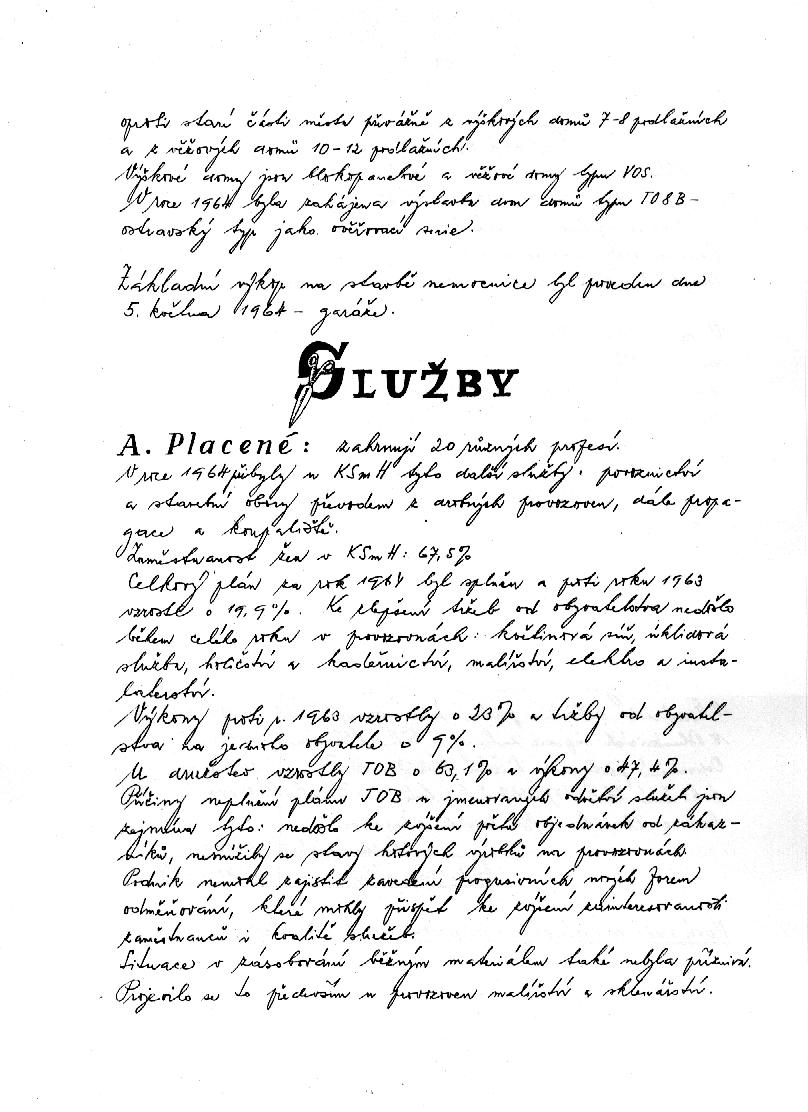 oproti staré části města převážně z výškových domů 7-8 podlažních
a z věžových domů 10-12 podlažních.
Výškové domy jsou blokopanelové a věžové domy typu VOS.
V roce 1964 byla zahájena výstavba dom domů typu T08B-
ostravský typ jako ověřovací serie.
Základní výkop na stavbě nemocnice byl proveden dne
5. května 1964 - garáže.
SLUŽBY
A. Placené: zahrnují 20 různých profesí.
V roce 1964 přibyly u KSmH tyto další služby: povoznictví
a stavební obory převodem z drobných provozoven, dále propa-
gace a koupaliště.
Zaměstnanost žen v KSmH: 67,5%
Celkový plán za rok 1964 byl splněn a proti roku 1963
vzrostl o 19,9%. Ke zlepšení tržeb od obyvatelstva nedošlo
během celého roku v provozovnách: květinová síň, úklidová
služba, holičství a kadeřnictví, malířství, elektro a insta-
latérství.
Výkony proti r. 1963 vzrostly o 23% a tržby od obyvatel-
stva na jednoho obyvatele o 9%.
U družstev vzrostly TOB o 63,1% a výkony o 47,4%.
Příčiny neplnění plánu TOB u jmenovaných odvětví služeb jsou
zejména tyto: nedošlo ke zvýšení počtu objednávek od zákaz-
níků, nesnížily se stavy hotových výrobků na provozovnách.
Podnik nemohl zajistit zavedení progresivních nových forem
odměňování, které mohly přispět ke zvýšení zainteresovanosti
zaměstnanců i kvalitě služeb.
Situace v zásobování běžným materiálem také nebyla příznivá.
Projevilo se to především u provozoven malířství a sklenářství.